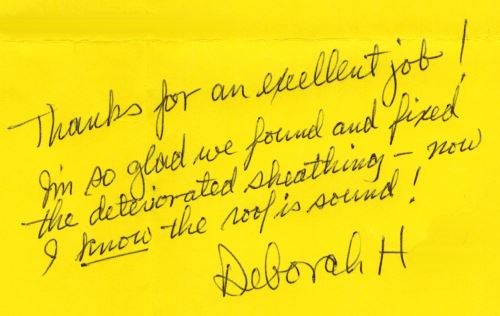 Thanks for an excellent job!
I'm so glad we found and fixed
the deteriorated sheathing – now
I know the roof is sound!
Deborah H